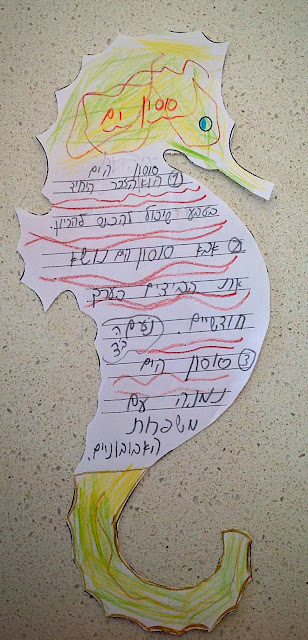 סוסון ים
סוסון הים
① הוא הזכר היחיד
בטבע שיכול להכנס להריון.
② אבא סוסון הים נושא
את הביצים בערך
חודשיים.
נועם ה
③ סוסון הים
נמנה עם
משפחת
האבובוניים.